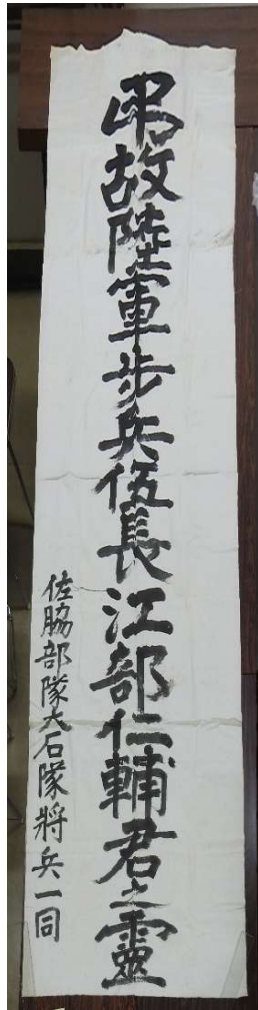 弔故陸軍歩兵伍長江部仁輔君之靈
佐脇部隊大石隊將兵一同